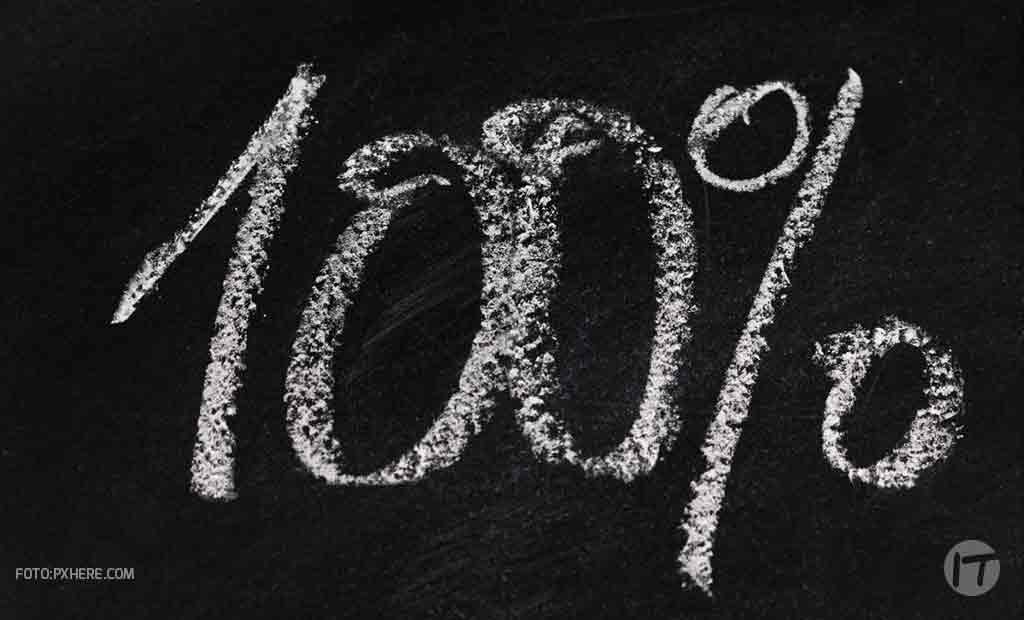 100%
FOTO:PXHERE.COM
IT